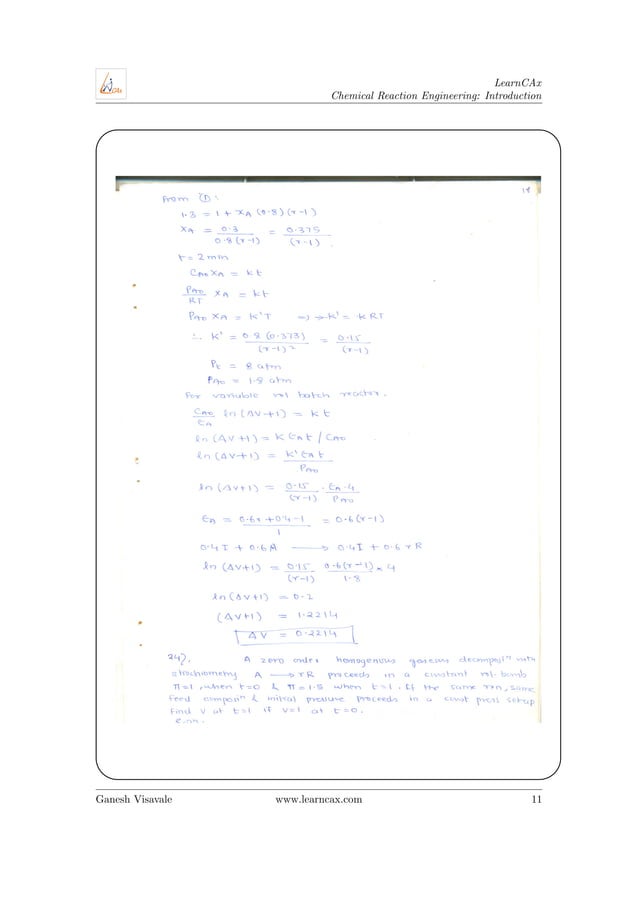 LearnCAx
Chemical Reaction Engineering: Introduction
19
From ①:
1.3 = 1 + XA (0.8)(r-1)
XA = 0.3 / 0.8(r-1) = 0.375 / (r-1)
t = 2 min
CA0 XA = kt
PA0 / RT XA = kt
PA0 XA = K'T => K' = KRT
∴ K' = 0.8 (0.373) / (r-1) 2 = 0.15 / (r-1)
Pt = 8 atm
PA0 = 1.8 atm
For variable vol batch reactor.
CA0 / ƐA ln(ΔV+1) = kt
ln(ΔV+1) = K ƐA t / CA0
ln(ΔV+1) = K' ƐA t / PA0
ln(ΔV+1) = 0.15 / (r-1) · ƐA·4 / PA0
ƐA = 0.6r + 0.4 - 1 / 1 = 0.6(r-1)
0.4 I + 0.6 A → 0.4 I + 0.6 r R
ln(ΔV+1) = 0.15 / (r-1) 0.6(r-1) / 1.8 × 4
ln(ΔV+1) = 0.2
(ΔV+1) = 1.2214
ΔV = 0.2214
24). A zero order homogenous gaseous decomposn with
stiochiometry A → rR proceeds in a constant vol. bomb
π=1, when t=0 & π=1.5 when t=1. If the same rxn, same
feed composn & initial pressure proceeds in a const press setup
find V at t=1 if V=1 at t=0.
Ganesh Visavale www.learncax.com 11